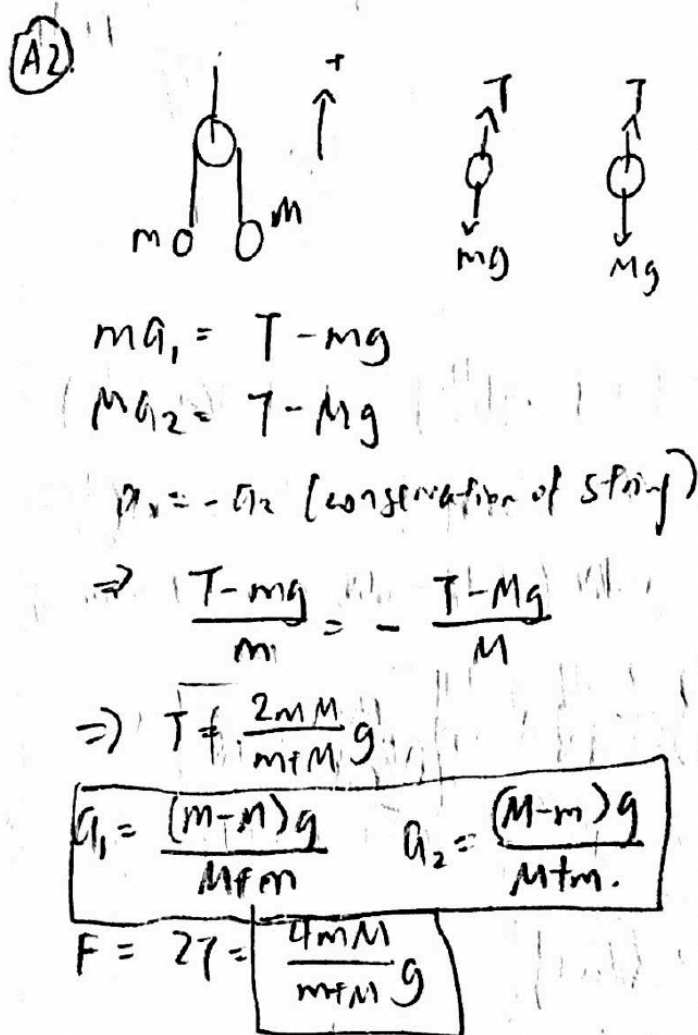 A2.
+
T T
m M
mg Mg
ma₁ = T - mg
Ma₂ = T - Mg
a₁ = - a₂ (conservation of string)
⇒ (T-mg)/m = - (T-Mg)/M
⇒ T = 2mM/(m+M) g
a₁ = (m-M)g/(M+m) a₂ = (M-m)g/(M+m).
F = 2T = 4mM/(m+M) g